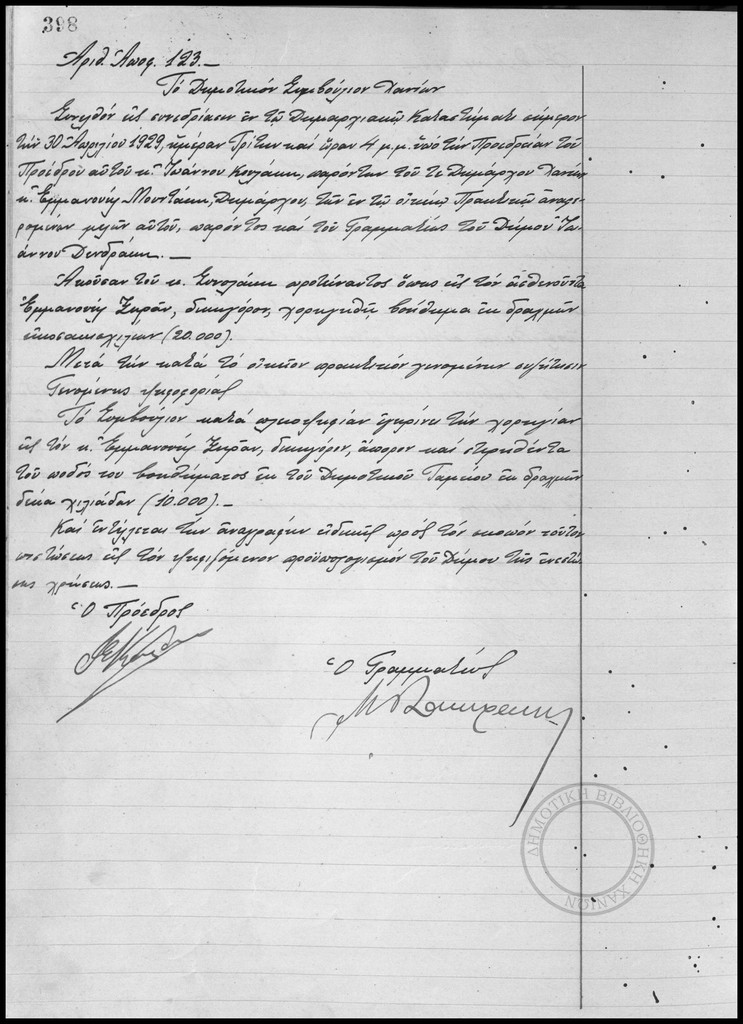 398
Ἀριθ. Ἀποφ. 123.—
Τό Δημοτικόν Συμβούλιον Χανίων
Συνελθόν εἰς συνεδρίασιν ἐν τῷ Δημαρχιακῷ Καταστήματι σήμερον
τήν 30 Ἀπριλίου 1929, ἡμέραν Τρίτην καί ὥραν 4 μ.μ. ὑπό τήν Προεδρείαν τοῦ
Προέδρου αὐτοῦ κ. Ἰωάννου, παρόντων τοῦ τε Δημάρχου Χανίων
κ. Ἐμμανουήλ Μουντάκη, Δημάρχου, τῶν ἐν τῷ οἰκείῳ Πρακτικῷ ἀναφε-
ρομένων μελῶν αὐτοῦ, παρόντος καί τοῦ Γραμματέως τοῦ Δήμου Ἰω-
άννου Δενδράκη.—
Ἀκοῦσαν τοῦ κ. προτείναντος ὅπως εἰς τόν ἀσθενοῦντα
Ἐμμανουήλ, δικηγόρον, χορηγηθῇ βοήθημα ἐκ δραχμῶν
εἰκοσακισχιλίων (20.000).
Μετά τήν κατά τό οἰκεῖον πρακτικόν γενομένην συζήτησιν
Γενομένης ψηφοφορίας
Τό Συμβούλιον κατά πλειοψηφίαν ἐγκρίνει τήν χορηγίαν
εἰς τόν κ. Ἐμμανουήλ, δικηγόρον, ἄπορον καί στερηθέντα
τοῦ ποδός του βοηθήματος ἐκ τοῦ Δημοτικοῦ Ταμείου ἐκ δραχμῶν
δέκα χιλιάδων (10.000).—
Καί ἐντέλλεται τήν ἀναγραφήν εἰδικῆς πρός τόν σκοπόν τοῦτον
πιστώσεως εἰς τόν ψηφιζόμενον προϋπολογισμόν τοῦ Δήμου τῆς ἐνεστώ-
σης χρήσεως.—
Ὁ Πρόεδρος
Ὁ Γραμματεύς
ΔΗΜΟΤΙΚΗ ΒΙΒΛΙΟΘΗΚΗ ΧΑΝΙΩΝ